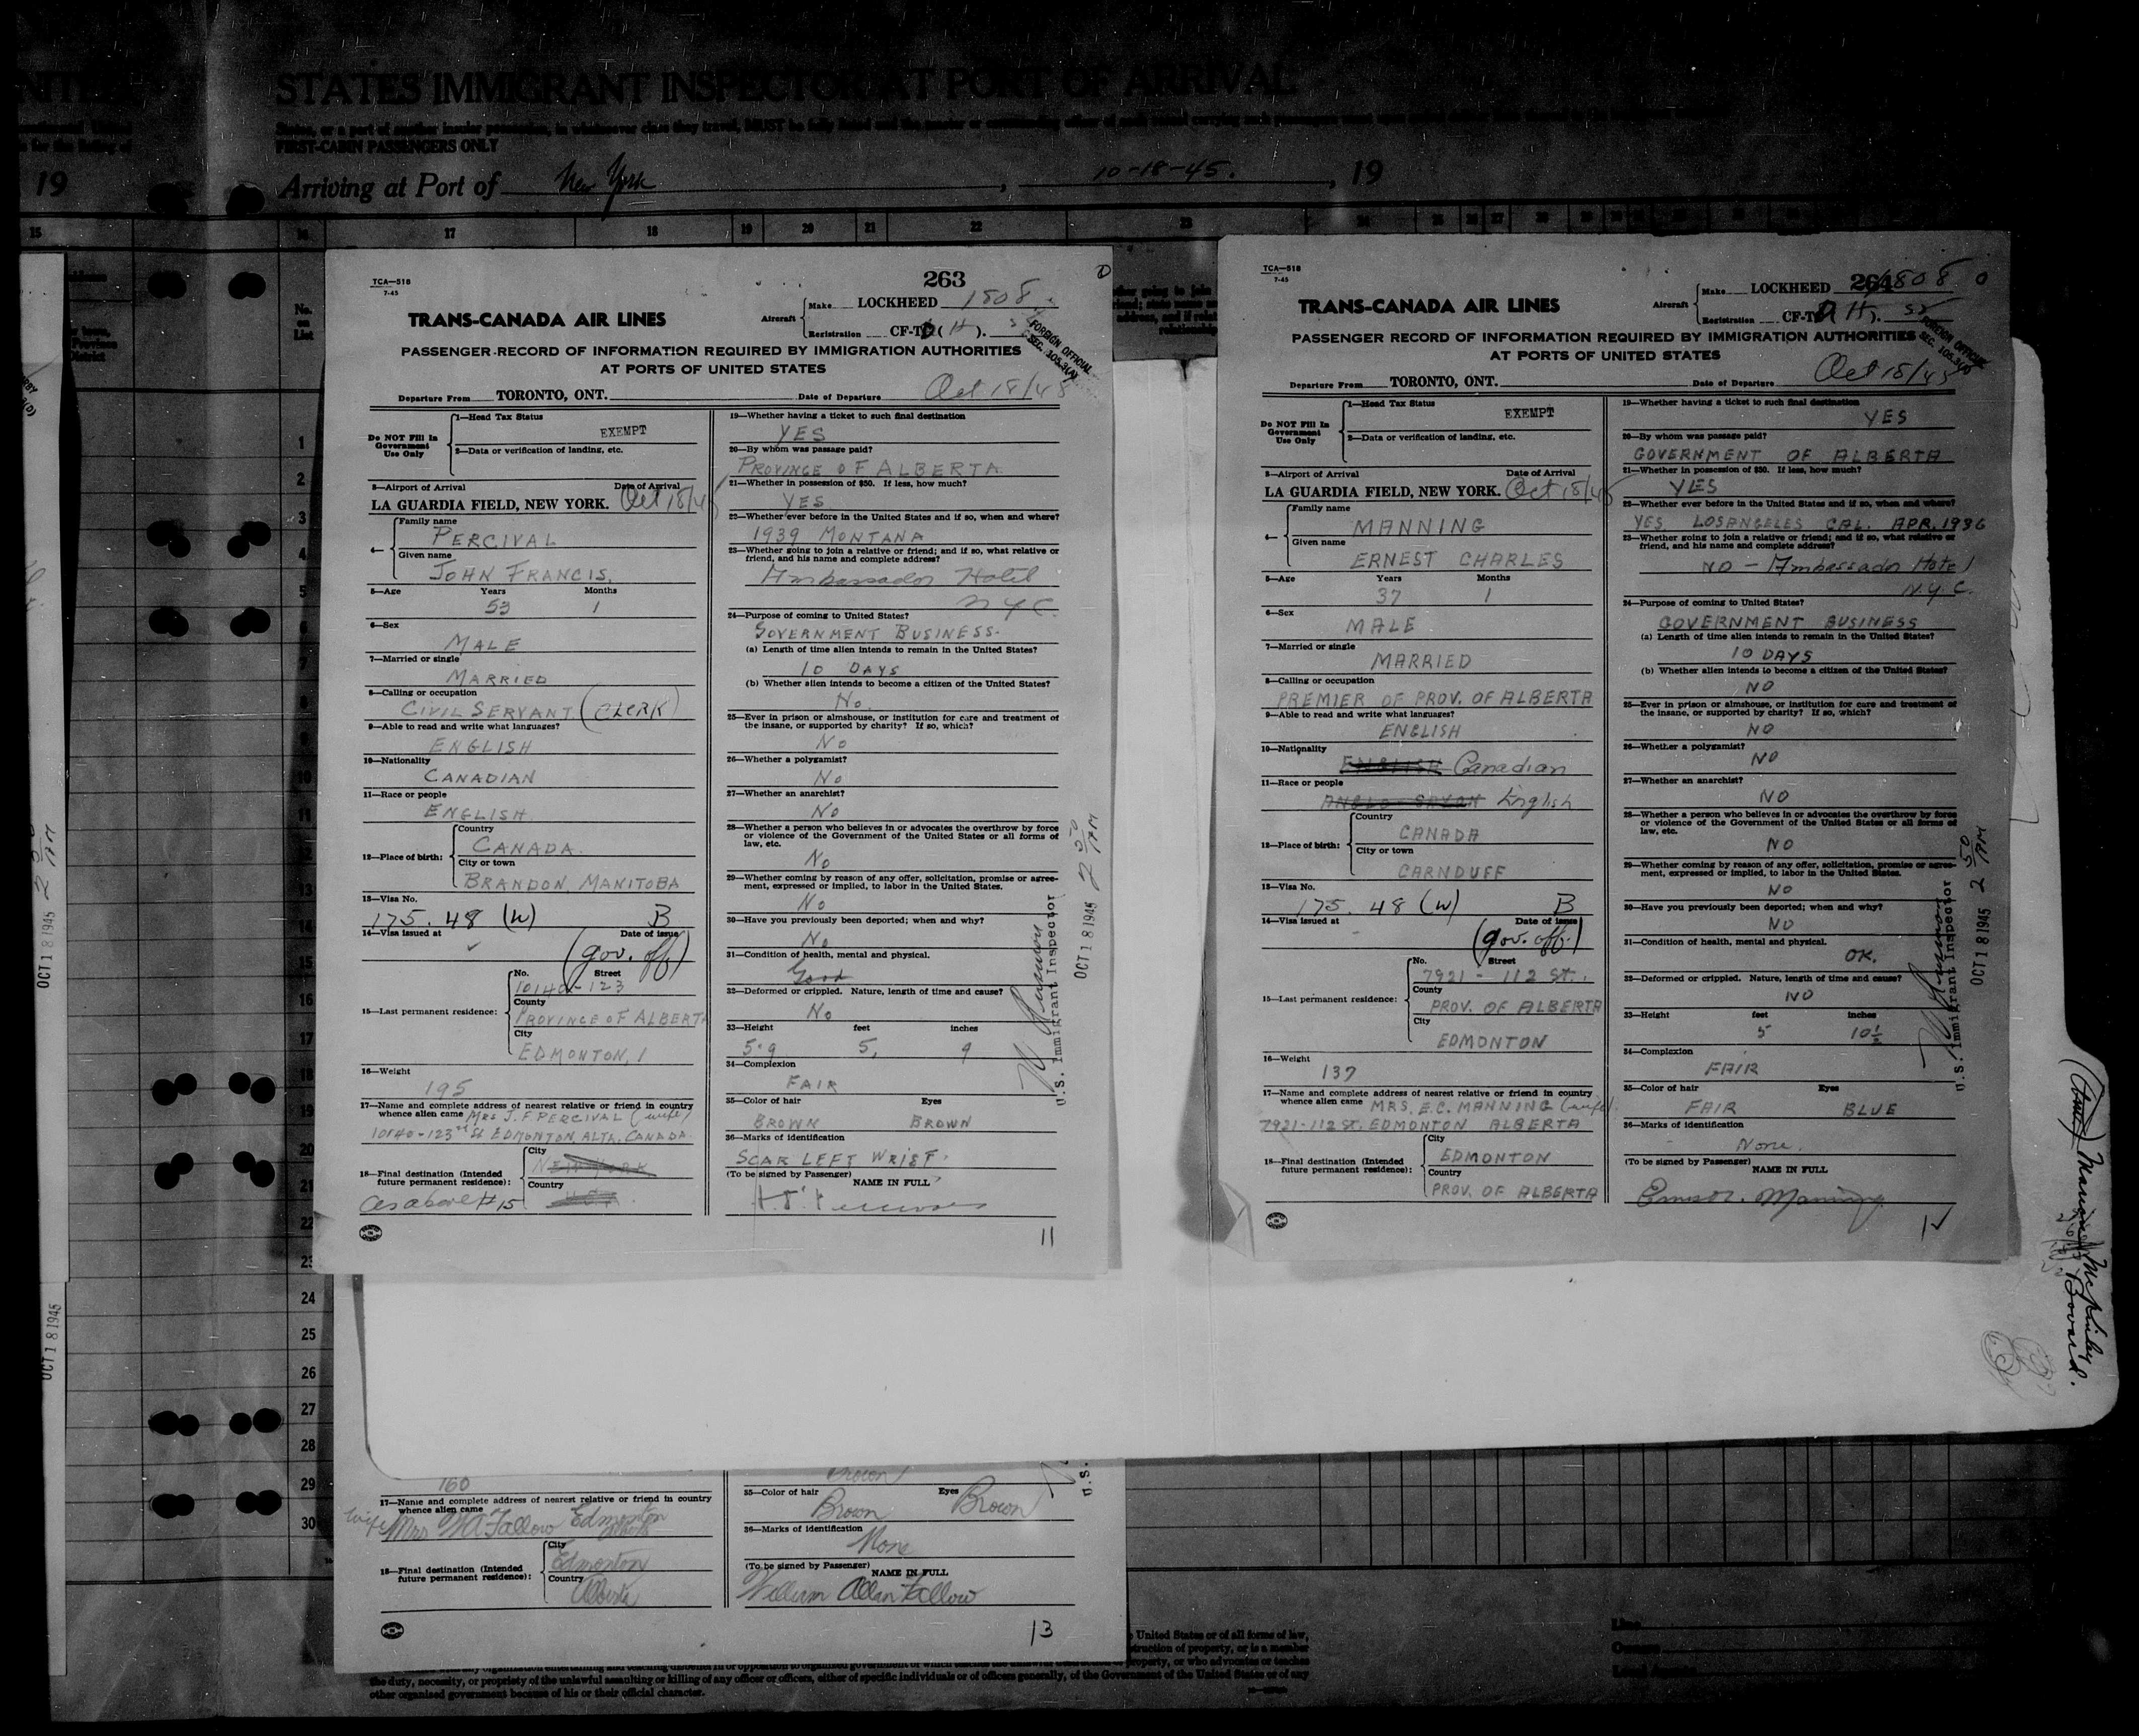 STATES IMMIGRANT INSPECTOR AT PORT OF ARRIVAL
FIRST-CABIN PASSENGERS ONLY
19
Arriving at Port of New York, 10-18-45., 19
15 16 17 18 19 20 21 22 23
No. on List
TCA—518
7-45
263
TRANS-CANADA AIR LINES
Aircraft
Make LOCKHEED 1808
Registration CF-T (H).
FOREIGN OFFICIAL
SEC. 105.3(A)
PASSENGER RECORD OF INFORMATION REQUIRED BY IMMIGRATION AUTHORITIES
AT PORTS OF UNITED STATES
Departure From TORONTO, ONT. Date of Departure Oct 18/45
Do NOT Fill In Government Use Only
1—Head Tax Status
EXEMPT
2—Data or verification of landing, etc.
3—Airport of Arrival Date of Arrival
LA GUARDIA FIELD, NEW YORK. Oct 18/45
4— Family name
PERCIVAL
Given name
JOHN FRANCIS.
5—Age Years Months
53 1
6—Sex
MALE
7—Married or single
MARRIED
8—Calling or occupation
CIVIL SERVANT (CLERK)
9—Able to read and write what languages?
ENGLISH
10—Nationality
CANADIAN
11—Race or people
ENGLISH
12—Place of birth:
Country
CANADA.
City or town
BRANDON, MANITOBA
13—Visa No.
175.48 (W) B
14—Visa issued at Date of issue
(gov. off)
15—Last permanent residence:
No. Street
10140-123
County
PROVINCE OF ALBERTA
City
EDMONTON,
16—Weight
195
17—Name and complete address of nearest relative or friend in country
whence alien came MRS J.F. PERCIVAL (wife)
10140-123rd St EDMONTON ALTA, CANADA.
18—Final destination (Intended future permanent residence):
City
NEW YORK
Country
U.S.A.
as above # 15
19—Whether having a ticket to such final destination
YES
20—By whom was passage paid?
PROVINCE OF ALBERTA
21—Whether in possession of $50. If less, how much?
YES
22—Whether ever before in the United States and if so, when and where?
1939 MONTANA
23—Whether going to join a relative or friend; and if so, what relative or
friend, and his name and complete address?
Ambassador Hotel
NYC
24—Purpose of coming to United States?
GOVERNMENT BUSINESS.
(a) Length of time alien intends to remain in the United States?
10 DAYS
(b) Whether alien intends to become a citizen of the United States?
No.
25—Ever in prison or almshouse, or institution for care and treatment of
the insane, or supported by charity? If so, which?
No
26—Whether a polygamist?
No
27—Whether an anarchist?
No
28—Whether a person who believes in or advocates the overthrow by force
or violence of the Government of the United States or all forms of
law, etc.
No
29—Whether coming by reason of any offer, solicitation, promise or agree-
ment, expressed or implied, to labor in the United States.
No
30—Have you previously been deported; when and why?
No
31—Condition of health, mental and physical.
Good
32—Deformed or crippled. Nature, length of time and cause?
No
33—Height feet inches
5.9 5, 9
34—Complexion
FAIR
35—Color of hair Eyes
BROWN BROWN
36—Marks of identification
SCAR LEFT WRIST.
(To be signed by Passenger)
NAME IN FULL
11
U.S. Immigrant Inspector
OCT 18 1945 2 50 PM
TCA—518
7-45
264
1808
TRANS-CANADA AIR LINES
Aircraft
Make LOCKHEED
Registration CF-T (H).
FOREIGN OFFICIAL
SEC. 105.3(A)
PASSENGER RECORD OF INFORMATION REQUIRED BY IMMIGRATION AUTHORITIES
AT PORTS OF UNITED STATES
Departure From TORONTO, ONT. Date of Departure Oct 18/45
Do NOT Fill In Government Use Only
1—Head Tax Status
EXEMPT
2—Data or verification of landing, etc.
3—Airport of Arrival Date of Arrival
LA GUARDIA FIELD, NEW YORK. Oct 18/45
4— Family name
MANNING
Given name
ERNEST CHARLES
5—Age Years Months
37 1
6—Sex
MALE
7—Married or single
MARRIED
8—Calling or occupation
PREMIER OF PROV. OF ALBERTA
9—Able to read and write what languages?
ENGLISH
10—Nationality
ENGLISH Canadian
11—Race or people
ANGLO-SAXON English
12—Place of birth:
Country
CANADA
City or town
CARNDUFF
13—Visa No.
175.48 (W) B
14—Visa issued at Date of issue
(gov. off)
15—Last permanent residence:
No. Street
7921 - 112 ST.
County
PROV. OF ALBERTA
City
EDMONTON
16—Weight
137
17—Name and complete address of nearest relative or friend in country
whence alien came MRS. E.C. MANNING (wife)
7921-112 ST. EDMONTON ALBERTA
18—Final destination (Intended future permanent residence):
City
EDMONTON
Country
PROV. OF ALBERTA
19—Whether having a ticket to such final destination
YES
20—By whom was passage paid?
GOVERNMENT OF ALBERTA
21—Whether in possession of $50. If less, how much?
YES
22—Whether ever before in the United States and if so, when and where?
YES. LOS ANGELES CAL. APR. 1936
23—Whether going to join a relative or friend; and if so, what relative or
friend, and his name and complete address?
NO - Ambassador Hotel
N.Y.C.
24—Purpose of coming to United States?
GOVERNMENT BUSINESS
(a) Length of time alien intends to remain in the United States?
10 DAYS
(b) Whether alien intends to become a citizen of the United States?
NO
25—Ever in prison or almshouse, or institution for care and treatment of
the insane, or supported by charity? If so, which?
NO
26—Whether a polygamist?
NO
27—Whether an anarchist?
NO
28—Whether a person who believes in or advocates the overthrow by force
or violence of the Government of the United States or all forms of
law, etc.
NO
29—Whether coming by reason of any offer, solicitation, promise or agree-
ment, expressed or implied, to labor in the United States.
NO
30—Have you previously been deported; when and why?
NO
31—Condition of health, mental and physical.
OK.
32—Deformed or crippled. Nature, length of time and cause?
NO
33—Height feet inches
5 10½
34—Complexion
FAIR
35—Color of hair Eyes
FAIR BLUE
36—Marks of identification
None.
(To be signed by Passenger)
NAME IN FULL
Ernest C. Manning
U.S. Immigrant Inspector
OCT 18 1945 2 50 PM
160
17—Name and complete address of nearest relative or friend in country
whence alien came
wife Mrs WA Fallow Edmonton
18—Final destination (Intended future permanent residence):
City
Edmonton
Country
Alberta
35—Color of hair Eyes
Brown Brown
36—Marks of identification
None
(To be signed by Passenger)
NAME IN FULL
William Allan Fallow
13
United States or of all forms of law,
the duty, necessity, or propriety of the unlawful assaulting or killing of any officer or officers, either of specific individuals or of officers generally, of the Government of the United States or of any
other organized government because of his or their official character.
OCT 18 1945
OCT 18 1945